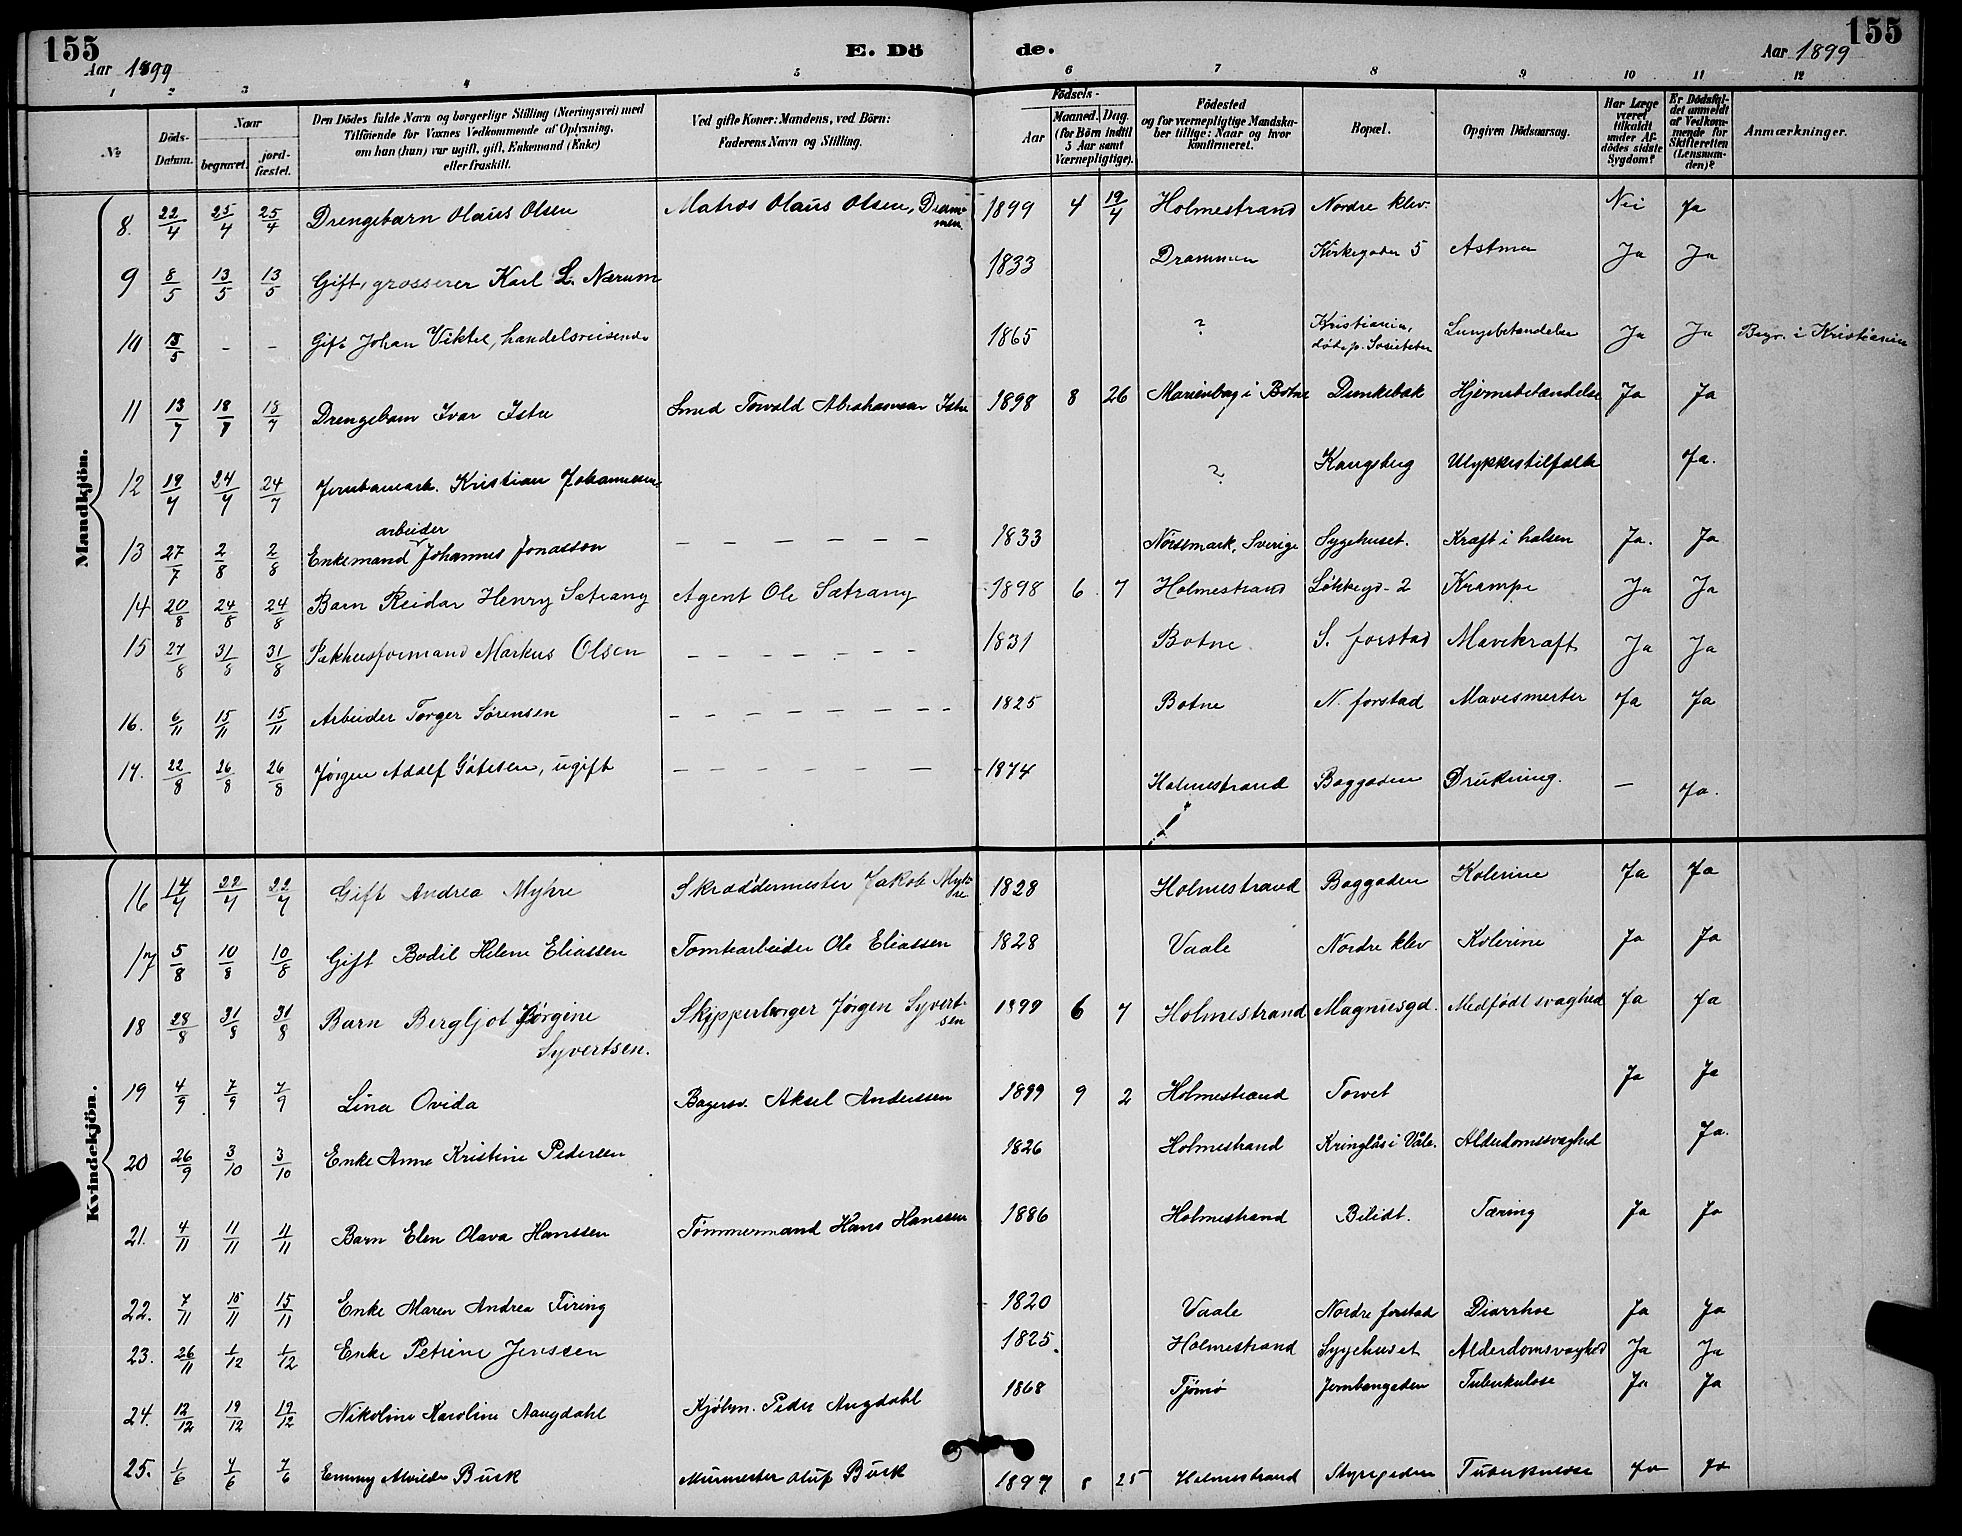 155 E. Dö de. 155
Aar 1899 Aar 1899
1 2 3 4 5 6 7 8 9 10 11 12
№ Döds-Datum. Naar begravet. jord-fæstet. Den Dödes fulde Navn og borgerlige Stilling (Næringsvei) med Tilföiende for Voxnes Vedkommende af Oplysning, om han (hun) var ugift, gift, Enkemand (Enke) eller fraskilt. Ved gifte Koner: Mandens, ved Börn: Faderens Navn og Stilling. Födsels- Aar Maaned. Dag. (for Börn indtil 5 Aar samt Værnepligtige). Födested og for værnepligtige Mandskaber tillige: Naar og hvor konfirmeret. Bopæl. Opgiven Dödsaarsag. Har Læge været tilkaldt under Afdödes sidste Sygdom? Er Dödsfaldet anmeldt af Vedkommende for Skifteretten (Lensmanden)? Anmærkninger.
Mandkjön.
8. 22/4 25/4 25/4 Drengebarn Olaus Olsen Matros Olaus Olsen, Drammen 1899 4 19/4 Holmestrand Nordre klev. Nei Ja
9 8/5 13/5 13/5 Gift, grosserer Karl L. Nærum 1833 Drammen Kirkegaden 5 Astma Ja Ja
10 /5 - - Gift Johan Viktel, handelsreisende 1865 ? Kristiania, døde p. Societeten Lungebetændelse Ja Ja Begr. i Kristiania
11 13/7 18/7 18/7 Drengebarn Ivar Istre Smed Torvald Abrahamsen Istre 1898 8 26 Marienborg i Botne Dunkebæk Hjernebetændelse Ja Ja
12 19/7 24/7 24/7 Jernbanearb. Kristian Johannesen ? Kongsberg Ulykkestilfælde Ja.
13 27/7 2/8 2/8 Enkemand arbeider Johannes Jonasson - - - - - - 1833 Nössemark, Sverige Sygehuset. Kræft i halsen Ja. Ja
14 20/8 24/8 24/8 Barn Reidar Henry Sætrang Agent Ole Sætrang 1898 6 7 Holmestrand Løkkegd. 2 Krampe Ja Ja
15 27/8 31/8 31/8 Pakhusformand Markus Olsen - - - - - - - 1831 Botne. S. forstad Mavekræft Ja Ja
16. 6/11 15/11 15/11 Arbeider Torger Sørensen - - - - - - - - 1825 Botne N. forstad Mavesmerter Ja Ja
17. 22/8 26/8 26/8 Jørgen Adolf Gåtesen, ugift - - - - - - - 1874 Holmestrand Baggaden Drukning. - Ja.
Kvindekjön.
16 14/7 22/7 22/7 Gift Andrea Myhre Skræddermester Jakob Myhre 1828 Holmestrand Baggaden Kolerine Ja Ja
17 5/8 10/8 10/8 Gift Bodil Helene Eliassen Tomtearbeider Ole Eliassen 1828 Vaale Nordre klev Kolerine Ja Ja
18 28/8 31/8 31/8 Barn Bergljot Jørgine Syvertsen. Skipperborger Jørgen Syvertsen 1899 6 7 Holmestrand Magnusgd. Medfödt svaghed Ja Ja
19 4/9 7/9 7/9 Lina Ovida Bagersv. Aksel Anderssen 1899 9 2 Holmestrand Torvet Ja Ja
20 26/9 3/10 3/10 Enke Anne Kristine Pedersen 1826 Holmestrand Kringlås i Våle. Alderdomssvaghed Ja.
21. 4/11 11/11 11/11 Barn Elen Olava Hanssen Tømmermand Hans Hanssen 1886 Holmestrand Bilidt. Tæring Ja Ja
22. 7/11 15/11 15/11 Enke Maren Andrea Firing 1820 Vaale Nordre forstad Diarrhoe Ja Ja
23. 26/11 1/12 1/12 Enke Petrine Jenssen 1825. Holmestrand Sygehuset Alderdomsvaghed Ja Ja
24. 12/12 19/12 19/12 Nikoline Karoline Aaugdahl Kjøbm. Peder Augdahl 1868 Tjömö Jernbangaden Tuberkulose Ja Ja
25. 1/6 7/6 7/6 Emmy Alvilde Busk Murmester Oluf Busk 1897 8 25 Holmestrand Styregaden Tuberkulose Ja Ja